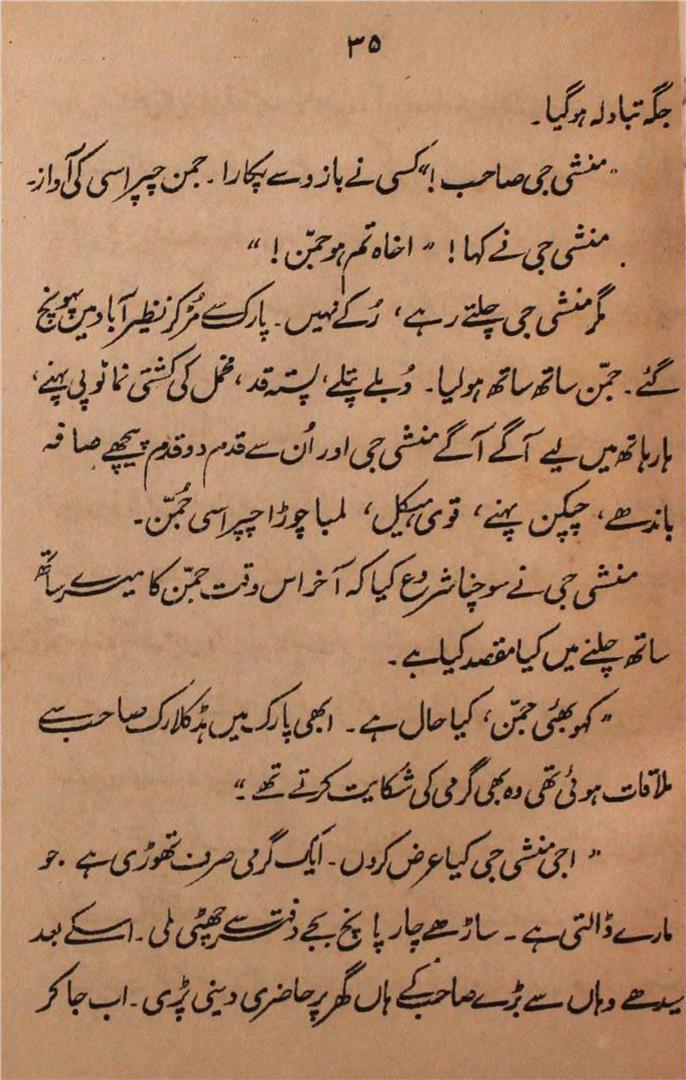 ۳۵
جگہ تبادلہ ہوگیا۔
"منشی جی صاحب!" کسی نے بازو سے پکارا۔ جمن چپراسی کی آواز۔
منشی جی نے کہا! "اخاہ تم ہو جمّن!"
مگر منشی جی چلتے رہے، رُکے نہیں۔ پارک سے مُڑ کر نظیر آباد میں پہونچ
گئے۔ جمّن ساتھ ساتھ ہولیا۔ دُبلے پتلے، پستہ قد، مخمل کی کشتی نما ٹوپی پہنے،
ہار ہاتھ میں لیے آگے آگے منشی جی اور اُن سے قدم دو قدم پیچھے صافہ
باندھے، چپکن پہنے، قوی ہیکل، لمبا چوڑا چپراسی جُمّن۔
منشی جی نے سوچنا شروع کیا کہ آخر اس وقت جمّن کا میرے ساتھ
ساتھ چلنے میں کیا مقصد کیا ہے۔
"کہو بھئی جمّن، کیا حال ہے۔ ابھی پارک میں ہڈ کلارک صاحب سے
ملاقات ہوئی تھی وہ بھی گرمی کی شکایت کرتے تھے۔"
"اجی منشی جی کیا عرض کروں۔ ایک گرمی صرف تھوڑی ہے جو
مارے ڈالتی ہے۔ ساڑھے چار پانچ بجے دفتر سے چھٹی ملی۔ اسکے بعد
سیدھے وہاں سے بڑے صاحب کے ہاں گھر پر حاضری دینی پڑی۔ اب جا کر